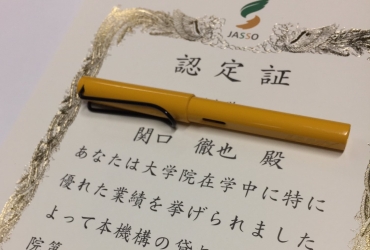 JASSO
認定証
関口 徹也 殿
あなたは大学院在学中に特に
優れた業績を挙げられました
よって本機構の貸与
院第